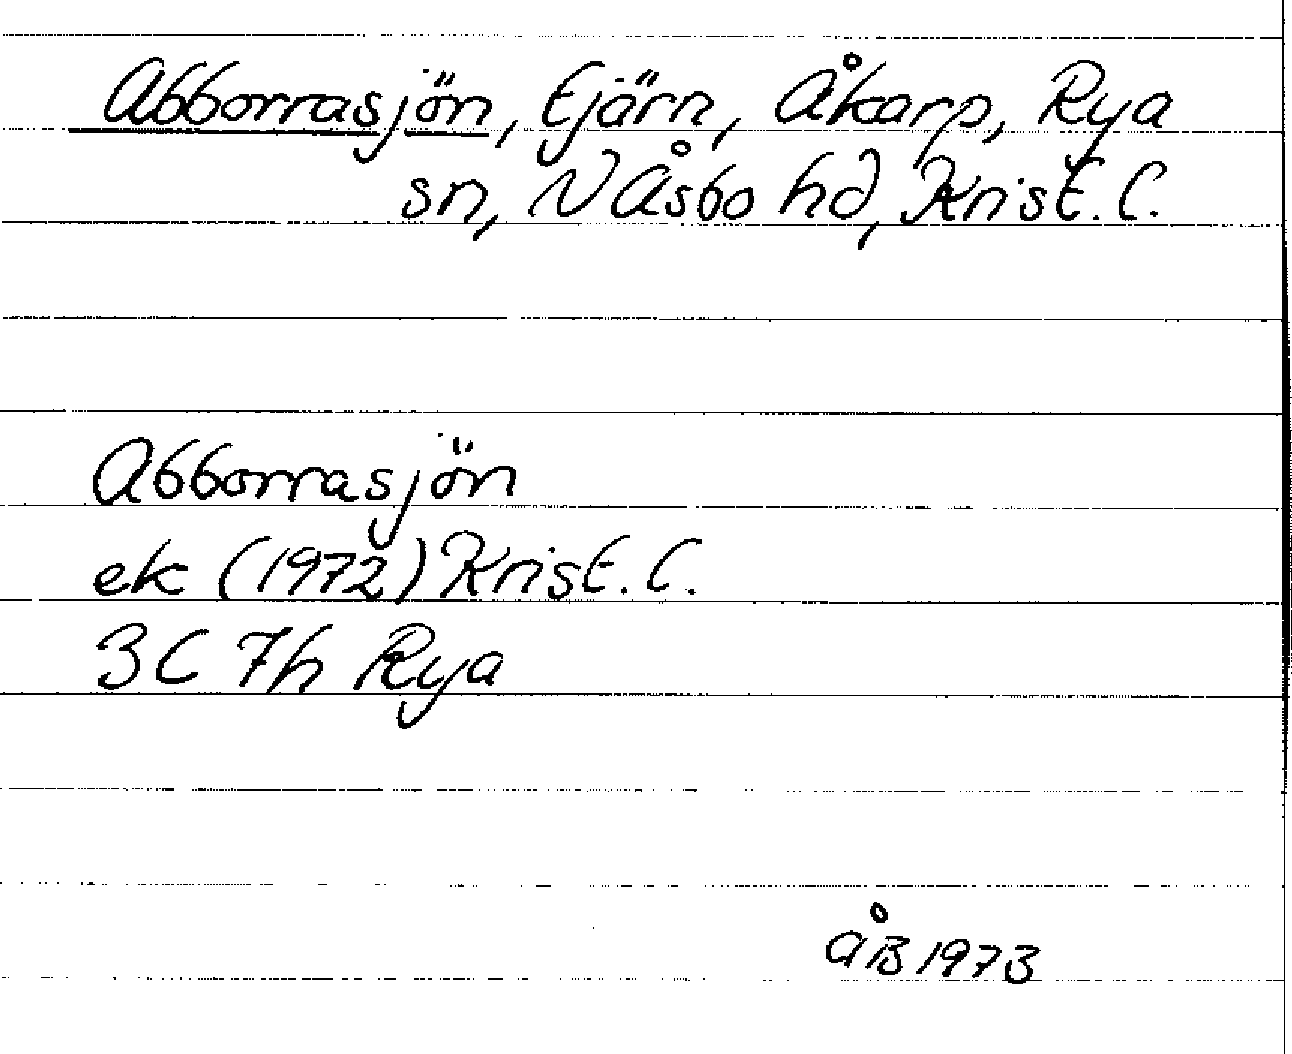 Abborrasjön, tjärn, Åkarp, Rya
sn, N Åsbo hd, Krist. l.
Abborrasjön
ek (1972) Krist. l.
3C 7h Rya
ÅB 1973